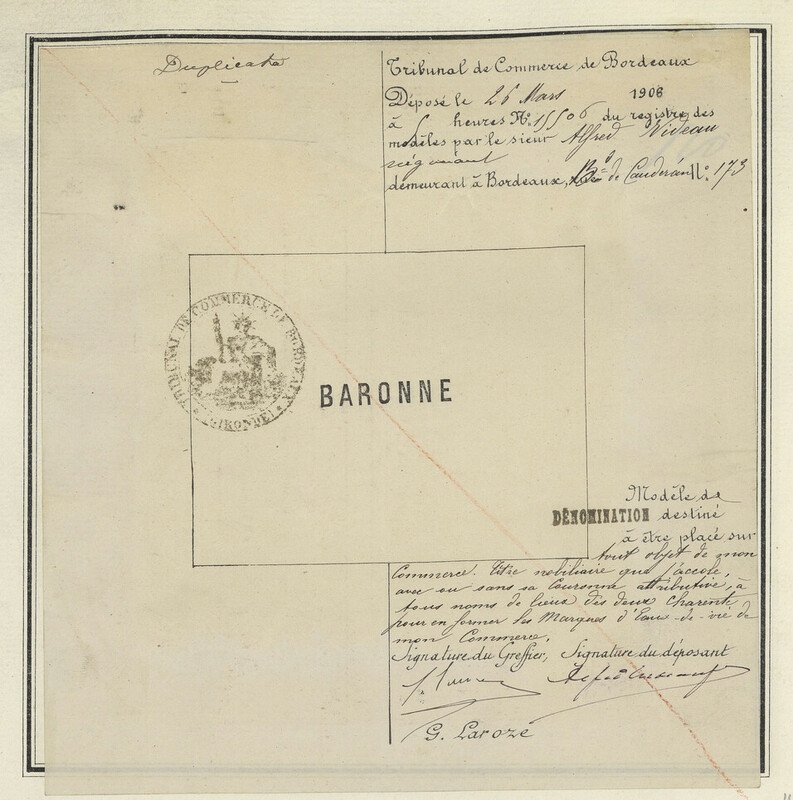 Duplicata
Tribunal de Commerce de Bordeaux
Déposé le 26 Mars 1906
à heures N° 15506 du registre des
modèles par le sieur Alfred Videau
négociant
demeurant à Bordeaux, Bd de Caudéran N° 173
TRIBUNAL DE COMMERCE DE BORDEAUX
(GIRONDE)
BARONNE
Modèle de
DÉNOMINATION destiné
à être placé sur
tout objet de mon
Commerce. Titre nobiliaire que j'accole,
avec ou sans sa Couronne attributive, à
tous noms de lieux des deux Charente
pour en former les Marques d'Eau-de-vie de
mon Commerce.
Signature du Greffier, Signature du déposant
G. Laroze